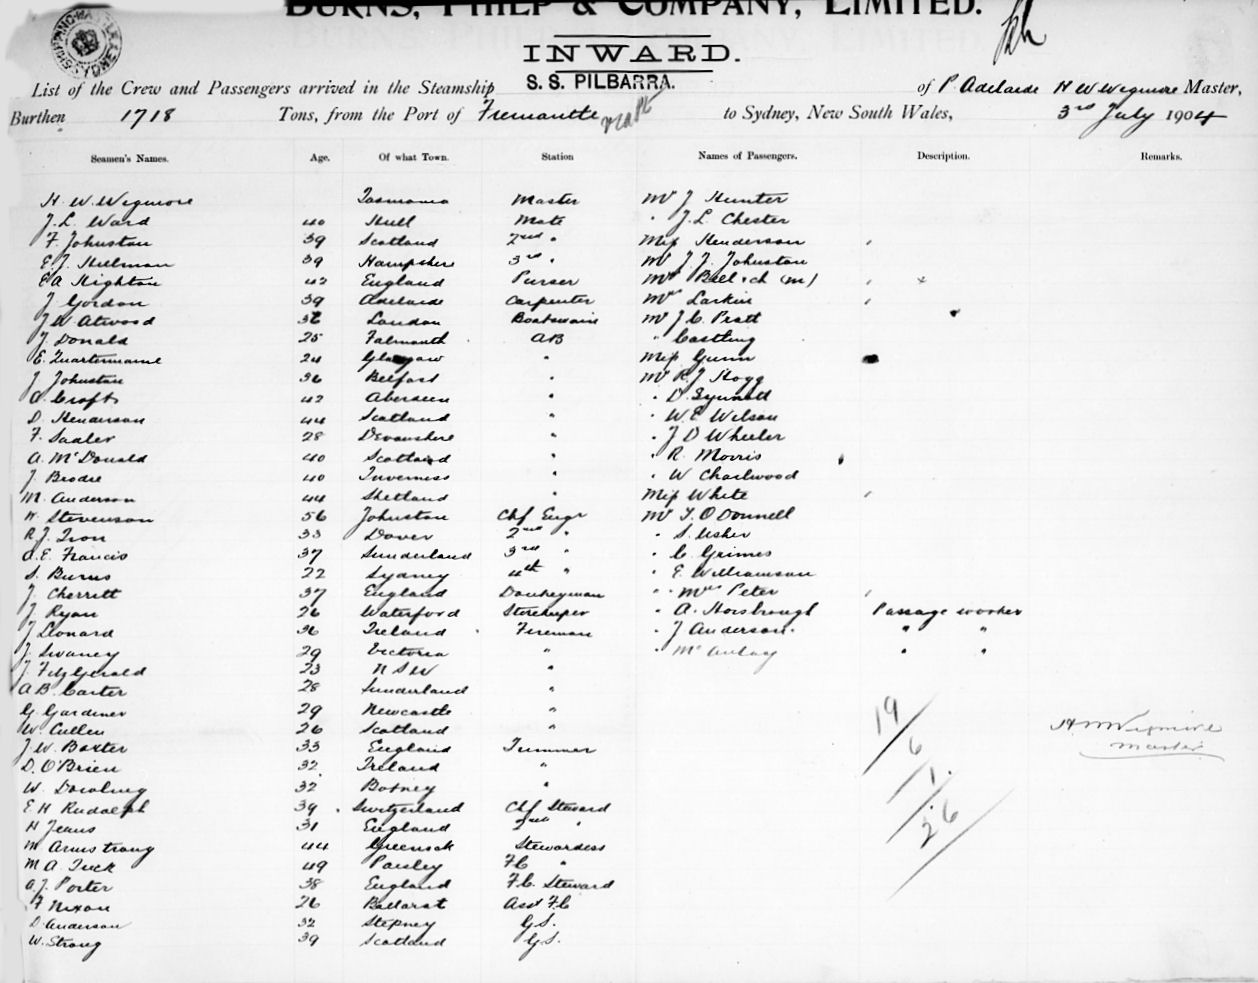 BURNS, PHILP & COMPANY, LIMITED.
INWARD.
List of the Crew and Passengers arrived in the Steamship S. S. PILBARRA. of P. Adelaide H W Wigmore Master,
Burthen 1718 Tons, from the Port of Fremantle to Sydney, New South Wales, 3rd July 1904
Seamen's Names. Age. Of what Town. Station Names of Passengers. Description. Remarks.
H. W. Wigmore Tasmania Master Mr J Hunter
J. L. Ward 40 Hull Mate " J. L. Chester
F. Johnston 39 Scotland 2nd " Miss Henderson
E. J. Hillman 39 Hampshire 3rd " Mr J J Johnston
E A Kighton 42 England Purser Mrs + ch (m)
J Gordon 39 Adelaide Carpenter Mrs Larkin
J W Atwood 36 London Boatswain Mr J C Pratt
J. Donald 25 Falmouth AB " Castling
E. Quartermaine 24 Glasgow " Miss Gunn
J Johnston 36 Belfast " Mr R. J Hogg
A Croft 42 Aberdeen " " D.
D. Henderson 44 Scotland " " W. E Wilson
F. Sadler 28 Devonshire " " J D Wheeler
A. McDonald 40 Scotland " " R. Morris
J. Brodie 40 Inverness " " W Charlwood
M. Anderson 44 Shetland " Miss White
H. Stevenson 56 Johnston Chf Engr Mr T. O'Donnell
R. J. Iron 33 Dover 2nd " " S. Usher
A. E. Francis 37 Sunderland 3rd " " C. Grimes
S. Burns 22 Sydney 4th " " E Williamson
J. Cherrett 37 England Donkeyman " Mrs Peter
J. Ryan 26 Waterford Storekeeper " A. Horsbrough Passage worker
J Leonard 36 Ireland Fireman " J Anderson " "
J. Swaney 29 Victoria " " McAulay " "
J. FitzGerald 23 N S W "
A B. Carter 28 Sunderland "
G. Gardiner 29 Newcastle "
W. Cullen 26 Scotland "
J. W. Baxter 33 England Trimmer
D. O'Brien 32 Ireland "
W. Dowling 32 Botney "
E H Rudolph 39 Switzerland Chf Steward
H Jeans 31 England 2nd "
M Armstrong 44 Greenock Stewardess
M A. Tuck 49 Paisley F.C "
A. J. Porter 38 England F.C. Steward
F Nixon 26 Ballarat Asst F.C
D Anderson 32 Stepney G.S.
W. Strong 39 Scotland G.S.
19
6
1.
26
H W Wigmore
Master